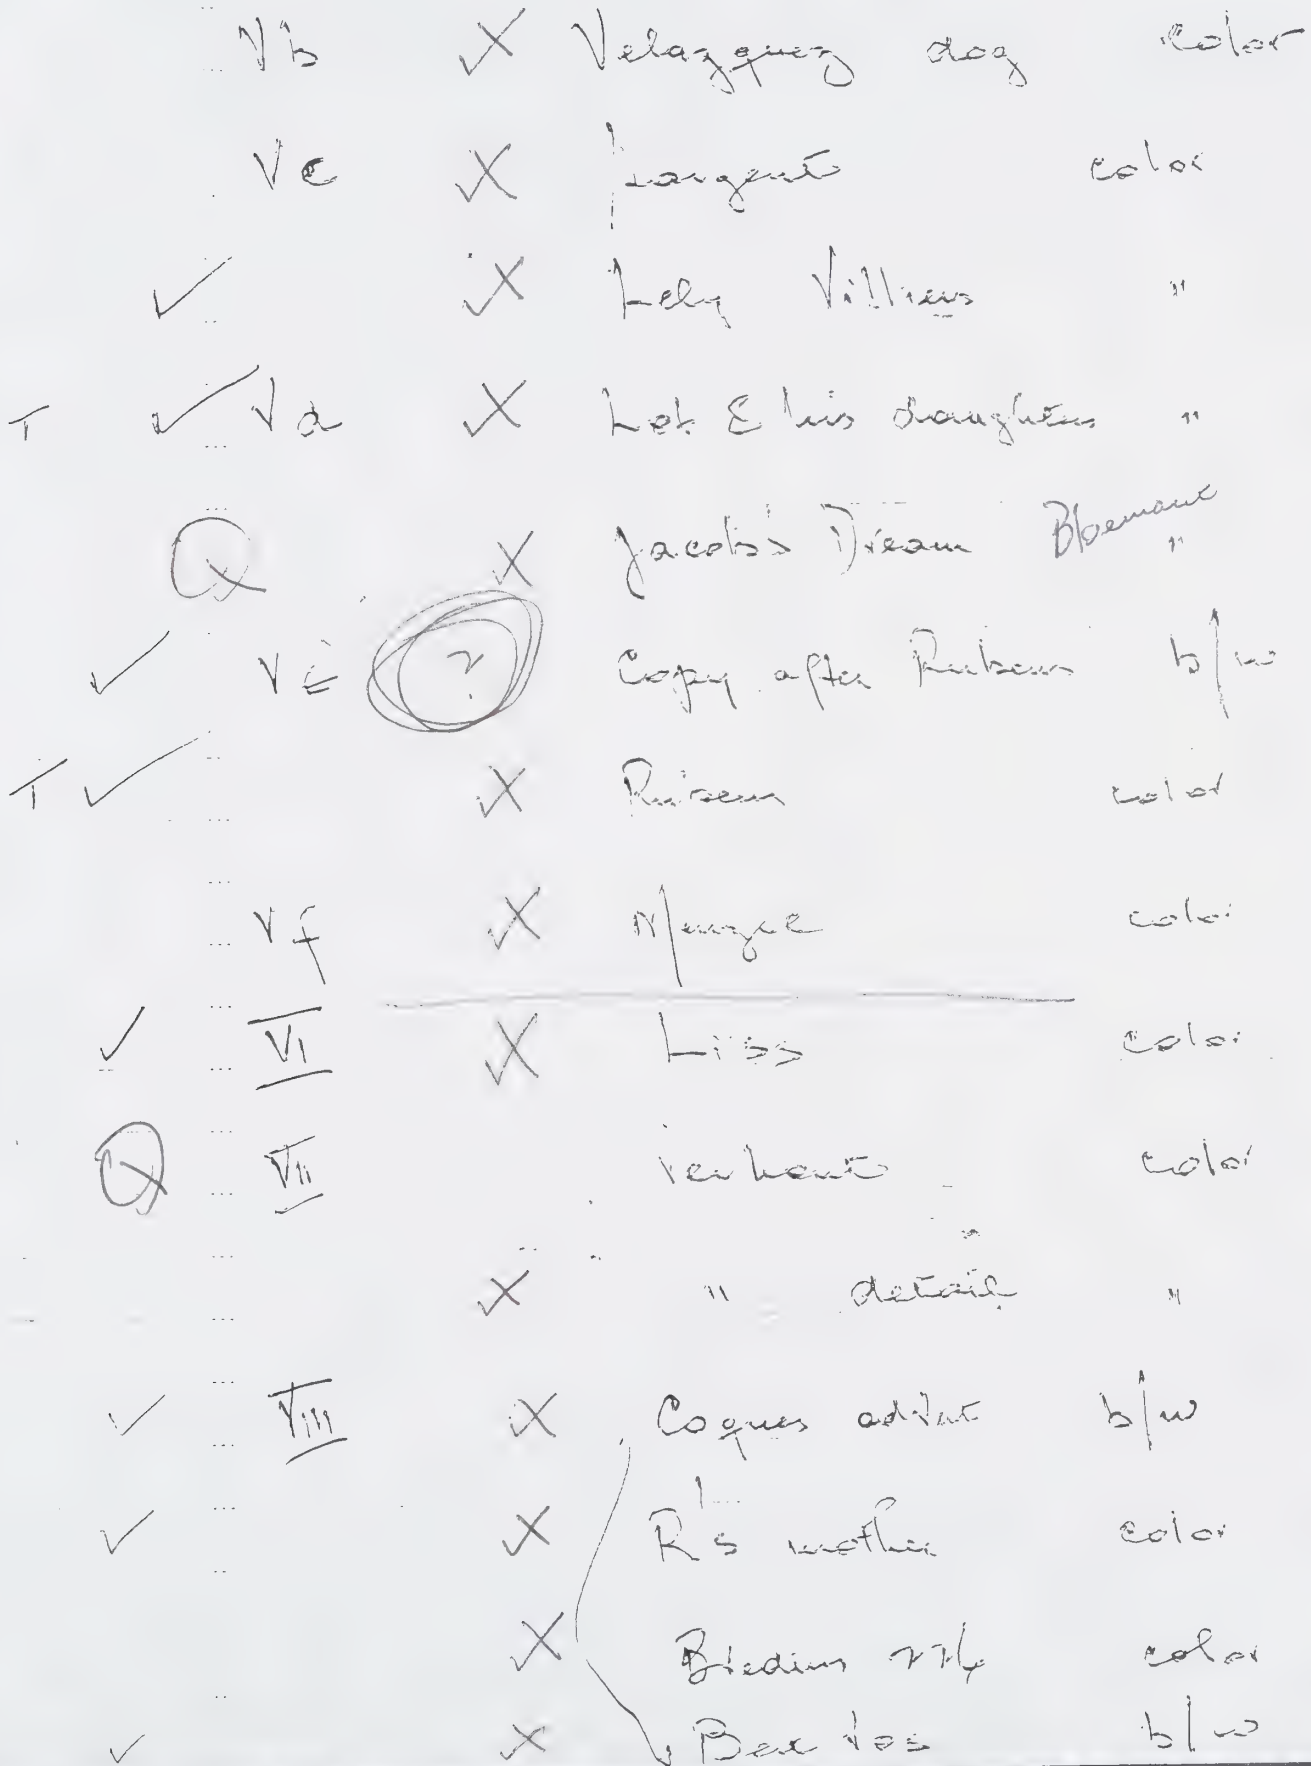 Vb X Velazquez dog color
Vc X Sargent color
✓ X Lely Villiers "
T ✓ Vd X Lot & his daughters "
Q X Jacob's Dream Bloemaert "
✓ Ve ? Copy after Rubens b/w
T ✓ X Rubens color
Vf X color
✓ VI X Liss color
Q VII color
X " detail "
✓ VIII X Coques b/w
✓ X R's mother color
X Bredius color
✓ X b/w